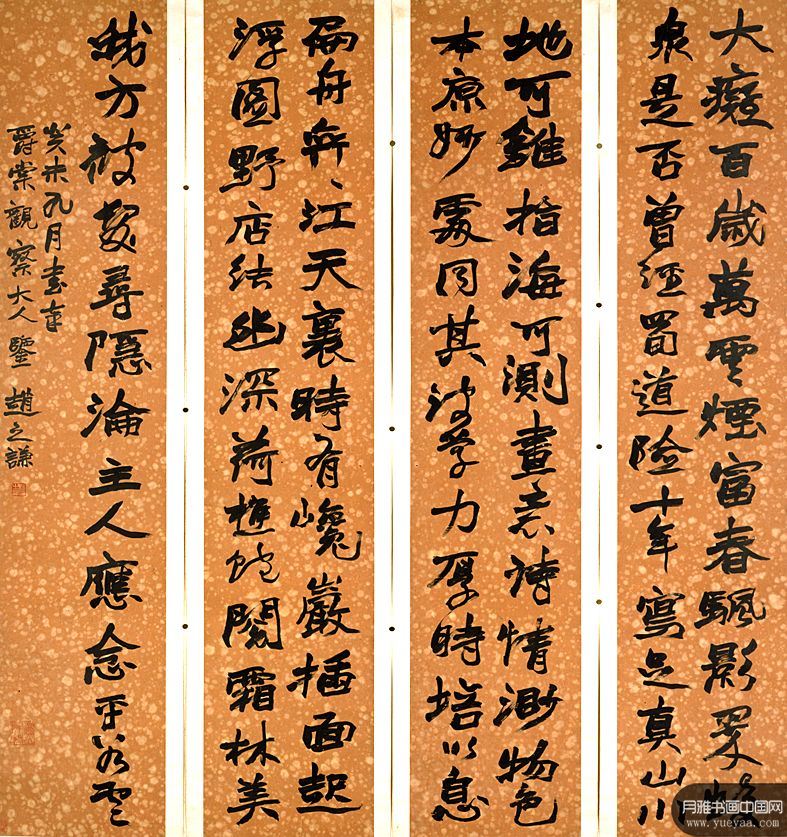 大癡百歲萬雲煙富春颿影
泉是否曾經蜀道險十年寫足真山川
地可錐指海可測畫意詩情渺物色
本原妙處同其波學力厚時培以息
扁舟奔江天裏時有巉巖插面起
浮圖野店結幽深荷樵閣霜林美
我方被髮尋隱淪主人應念平
癸未九月書奉
爵棠觀察大人鑒 趙之謙
月雅书画中国网
www.yueyaa.com